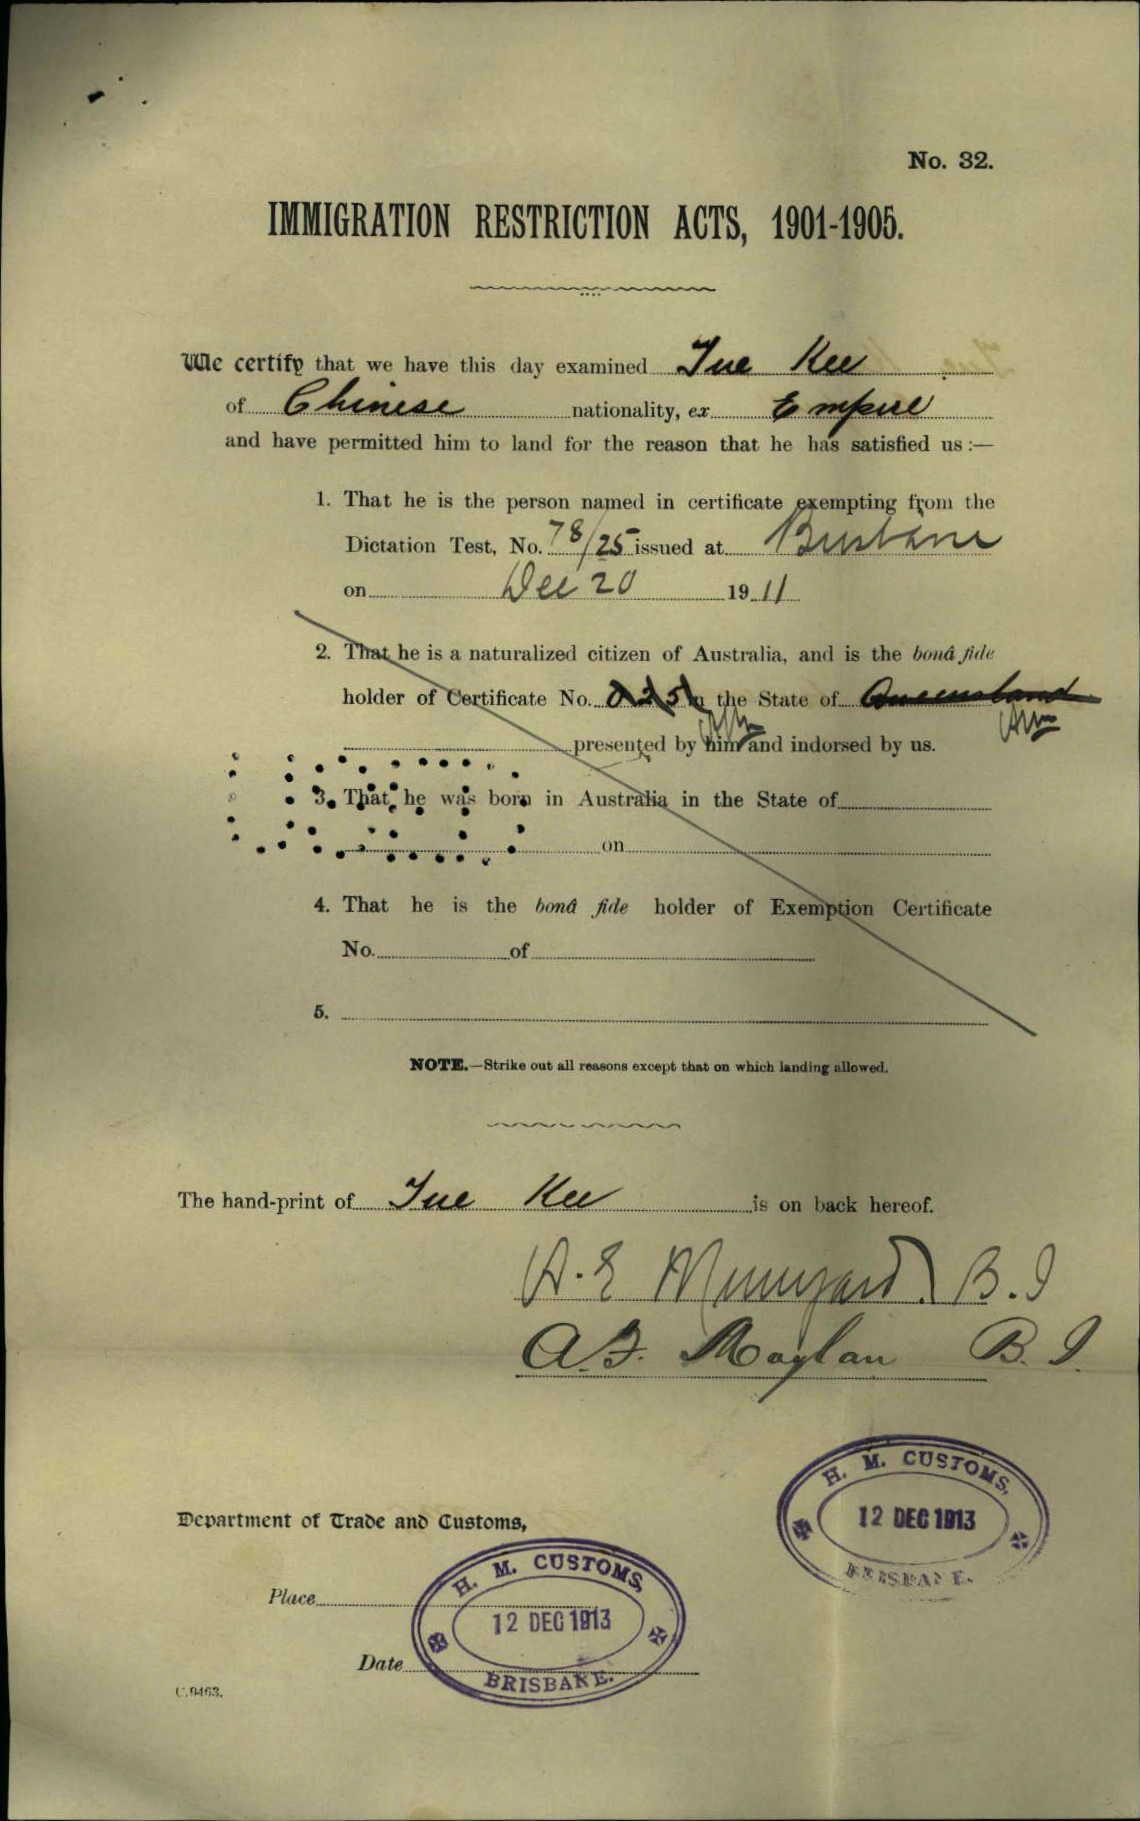 No. 32.
IMMIGRATION RESTRICTION ACTS, 1901-1905.
We certify that we have this day examined Kee
of Chinese nationality, ex Empire
and have permitted him to land for the reason that he has satisfied us :—
1. That he is the person named in certificate exempting from the
Dictation Test, No. 78/25 issued at Brisbane
on Dec 20 1911
2. That he is a naturalized citizen of Australia, and is the bonâ fide
holder of Certificate No. in the State of Queensland
presented by him and indorsed by us.
3. That he was born in Australia in the State of
on
4. That he is the bonâ fide holder of Exemption Certificate
No. of
5.
NOTE.—Strike out all reasons except that on which landing allowed.
The hand-print of Kee is on back hereof.
A. E B. I
A. F. Raglan B. I.
H. M. CUSTOMS,
12 DEC 1913
BRISBANE.
Department of Trade and Customs,
H. M. CUSTOMS,
Place
12 DEC 1913
Date
BRISBANE.
C.9463.